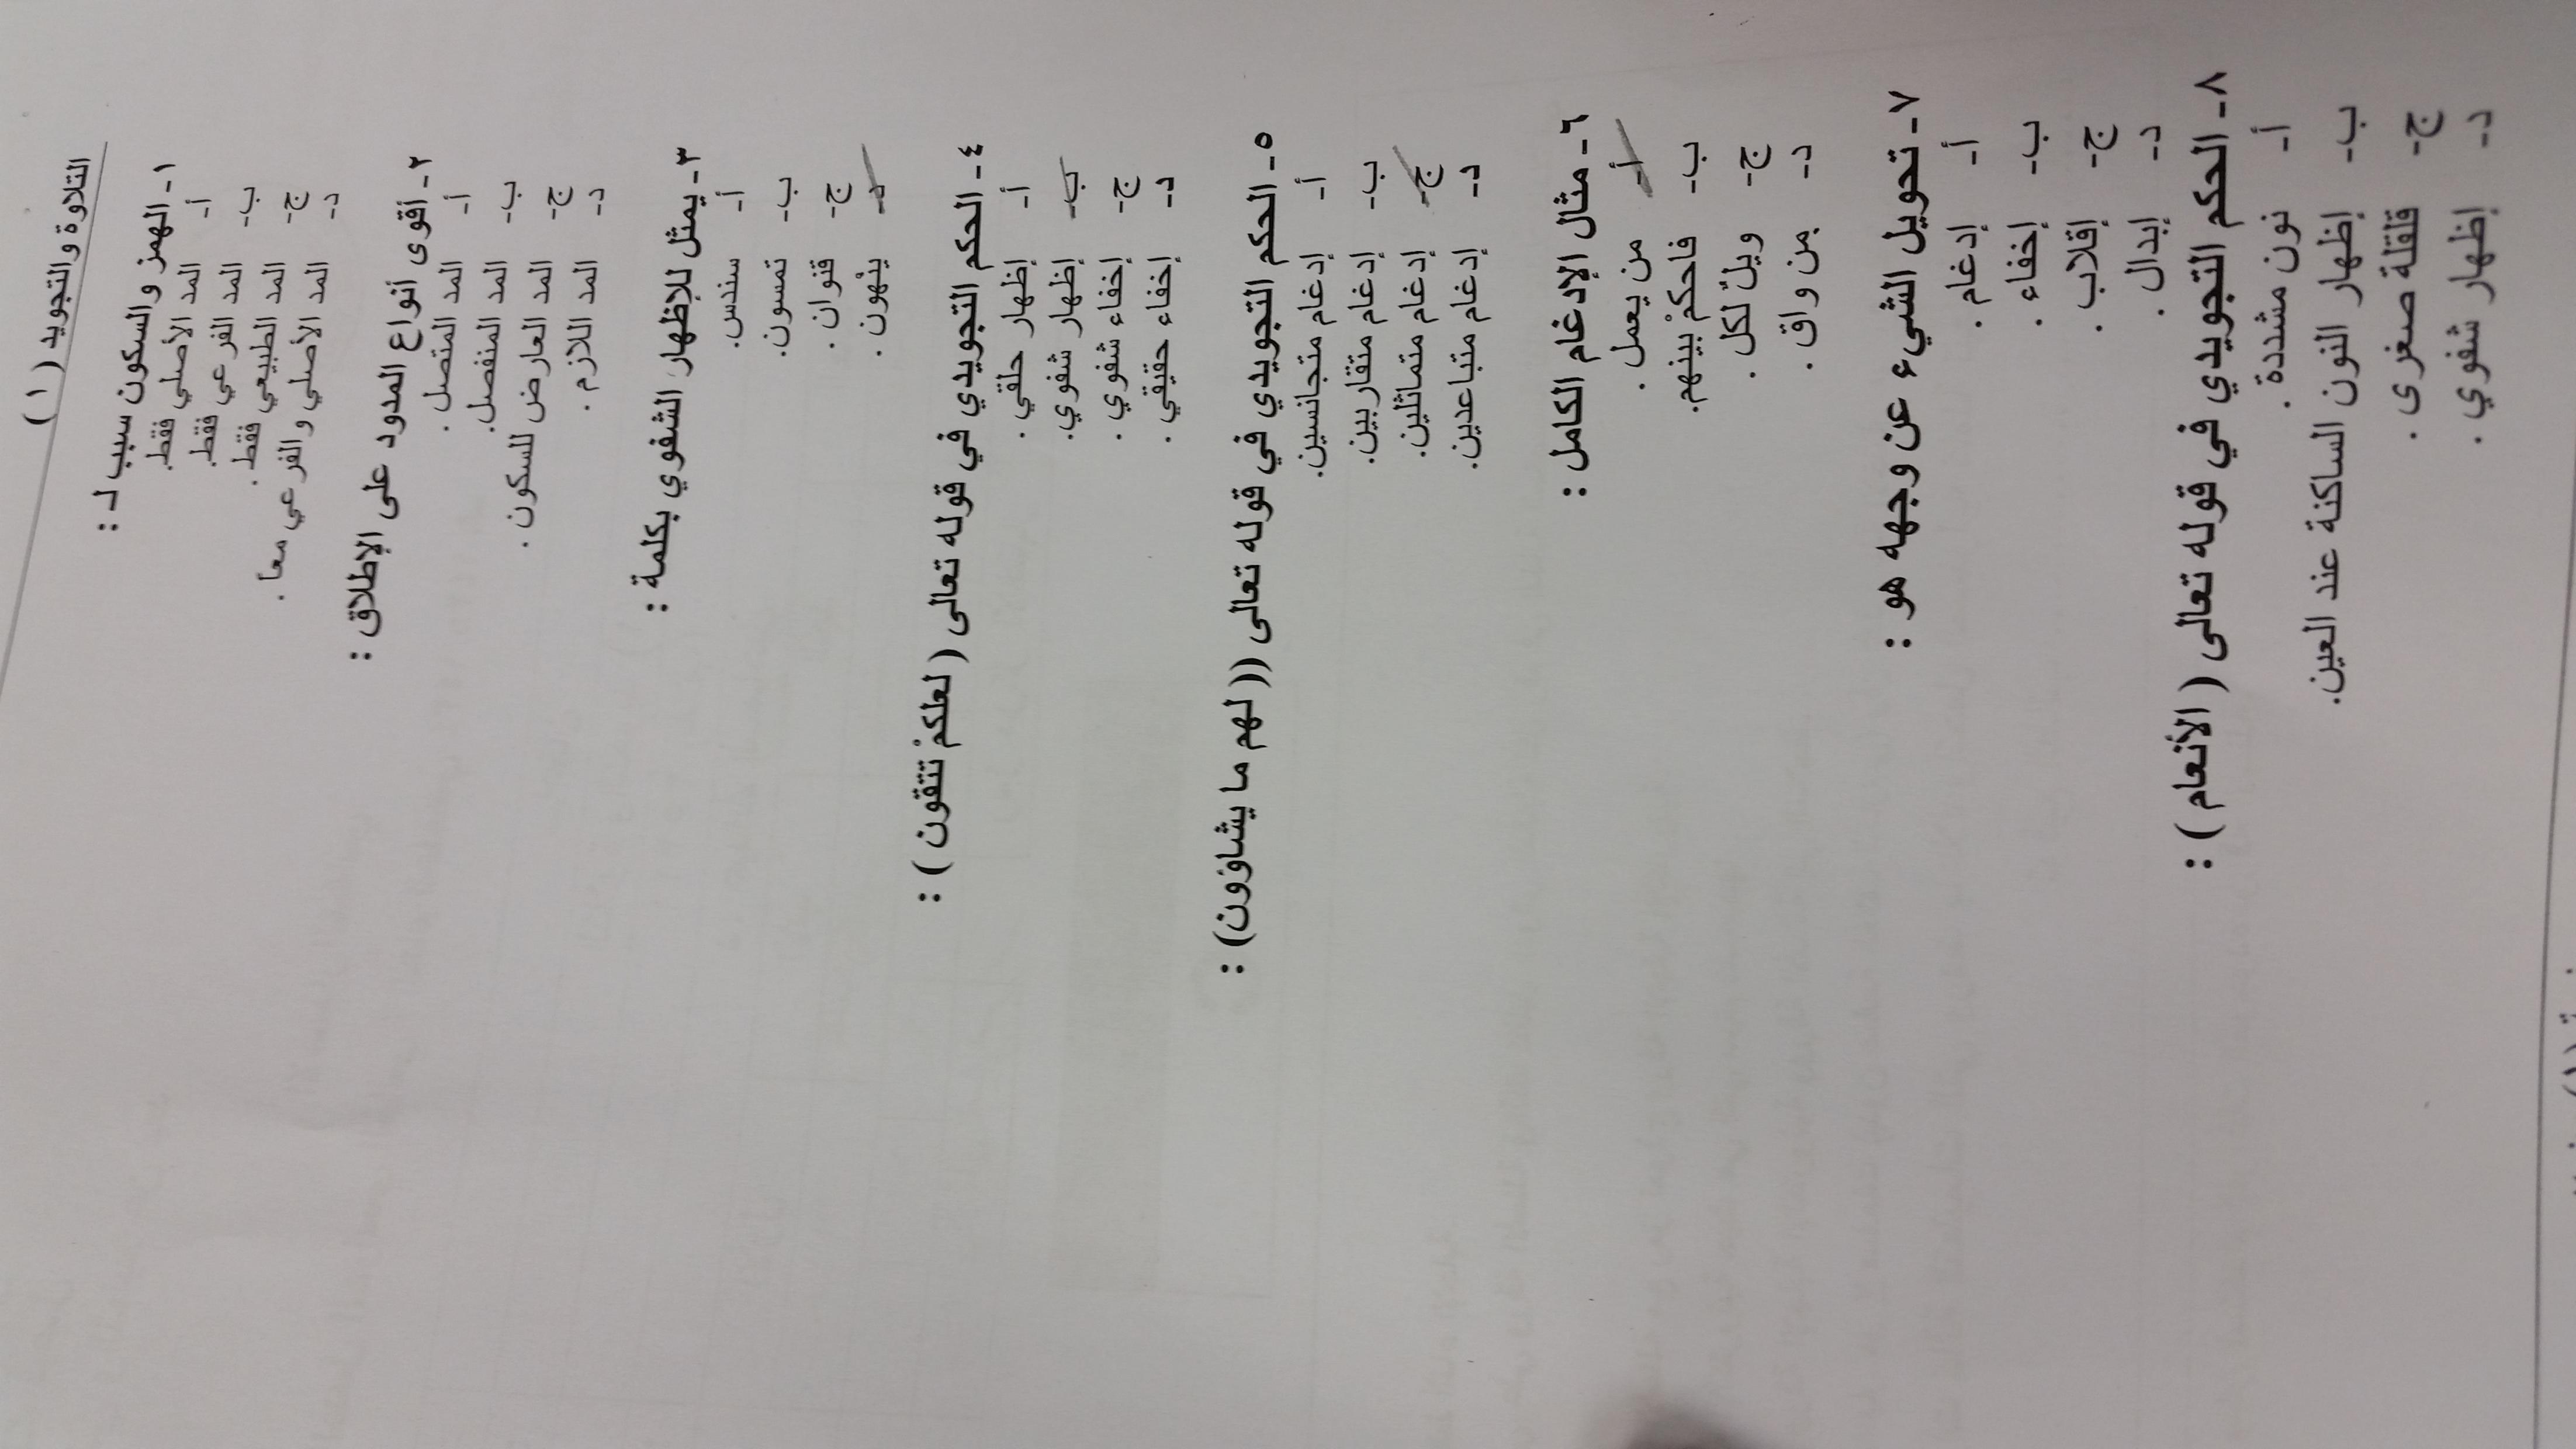 التلاوة والتجويد ( ١ )
١- الهمز والسكون سبب لـ :
أ- المد الأصلي فقط.
ب- المد الفرعي فقط.
ج- المد الطبيعي فقط .
د- المد الأصلي والفرعي معا .
٢- أقوى أنواع المدود على الإطلاق :
أ- المد المتصل .
ب- المد المنفصل.
ج- المد العارض للسكون .
د- المد اللازم .
٣- يمثل للإظهار الشفوي بكلمة :
أ- سندس.
ب- تمسون.
ج- قنوان .
د- ينْهون .
٤- الحكم التجويدي في قوله تعالى ( لعلكمْ تتقون ) :
أ- إظهار حلقي .
ب- إظهار شفوي.
ج- إخفاء شفوي .
د- إخفاء حقيقي .
٥- الحكم التجويدي في قوله تعالى (( لهم ما يشاؤون) :
أ- إدغام متجانسين.
ب- إدغام متقاربين.
ج- إدغام متماثلين.
د- إدغام متباعدين.
٦- مثال الإدغام الكامل :
أ- من يعمل .
ب- فاحكمْ بينهم.
ج- ويلٌ لكل .
د- من واق .
٧- تحويل الشيء عن وجهه هو :
أ- إدغام .
ب- إخفاء .
ج- إقلاب .
د- إبدال .
٨- الحكم التجويدي في قوله تعالى ( الأنعام ) :
أ- نون مشددة .
ب- إظهار النون الساكنة عند العين.
ج- قلقلة صغرى .
د- إظهار شفوي .